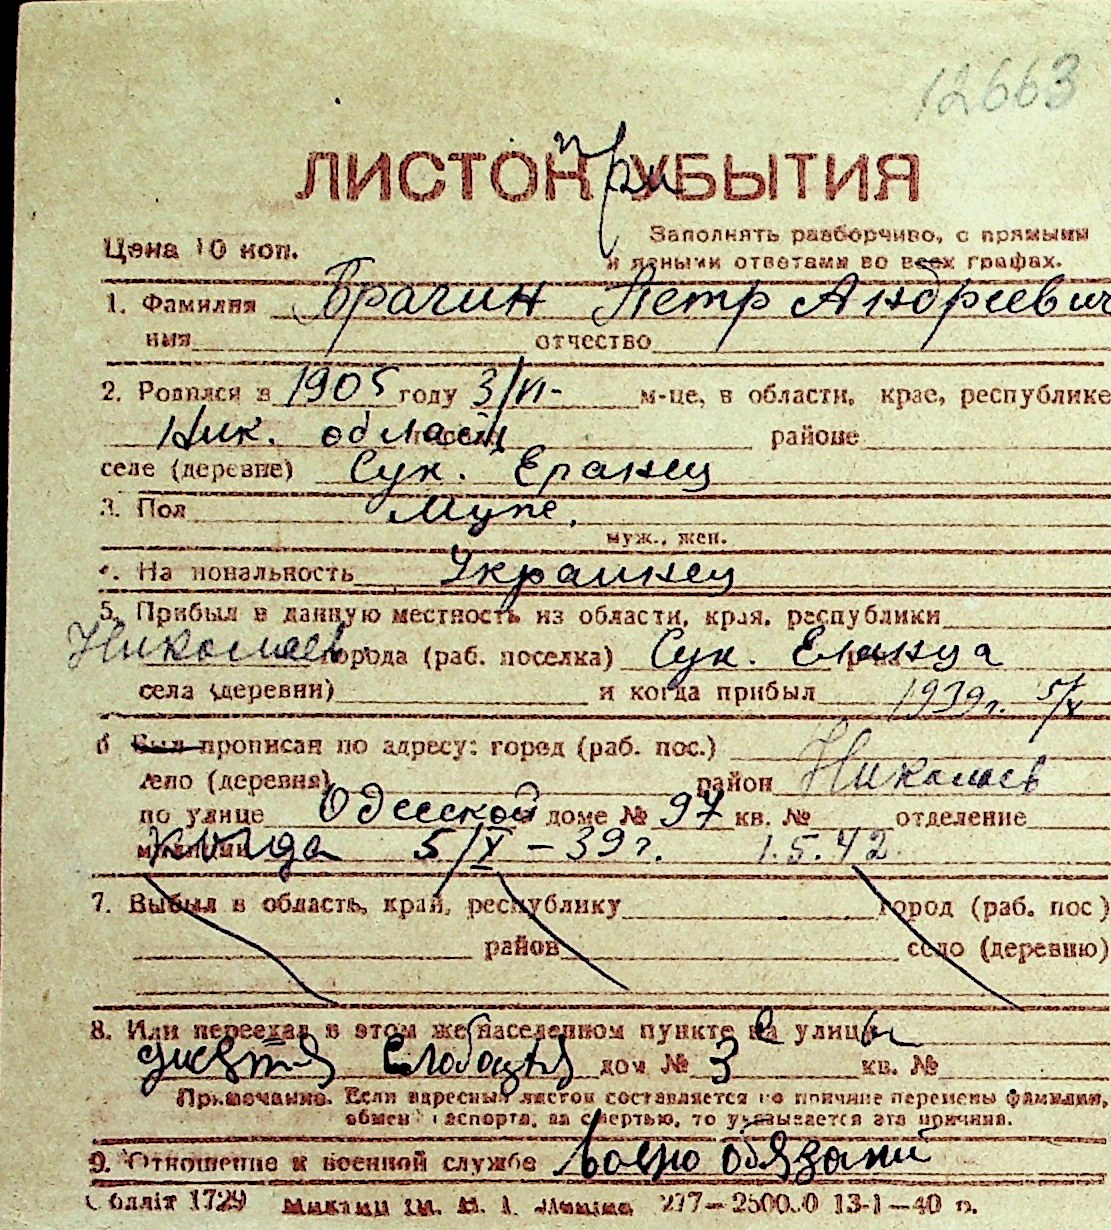 12663
ЛИСТОК при УБЫТИЯ
Цена 10 коп.
Заполнять разборчиво, с прямыми
и ясными ответами во всех графах.
1. Фамилия Брагин Петр Андреевич
имя отчество
2. Родился в 1905 году 3/VI- м-це, в области, крае, республике
Ник. область районе
селе (деревне) Сух. Еланец
3. Пол Муже.
муж., жен.
4. На иональность Украинец
5. Прибыл в данную местность из области, края, республики
Николаев. города (раб. поселка) Сух. Еланца
села (деревни) и когда прибыл 1939г. 5/X
6 Был прописан по адресу: город (раб. пос.)
село (деревня) район Николаев
по улице Одесской доме № 97 кв. № отделение
милиции когда 5/X – 39 г. 1.5.42
7. Выбыл в область, край, республику город (раб. пос )
район село (деревню)
8. Или переехал в этом же населенном пункте с улицы
Слободская дом № 3 кв. №
Примечание. Если адресный листок составляется по причине перемены фамилии,
обмен паспорта, за смертью, то указывается эта причина.
9. Отношение к военной службе военнообязаний
Соблліт 1729 277–2500.0 13-1–40 г.